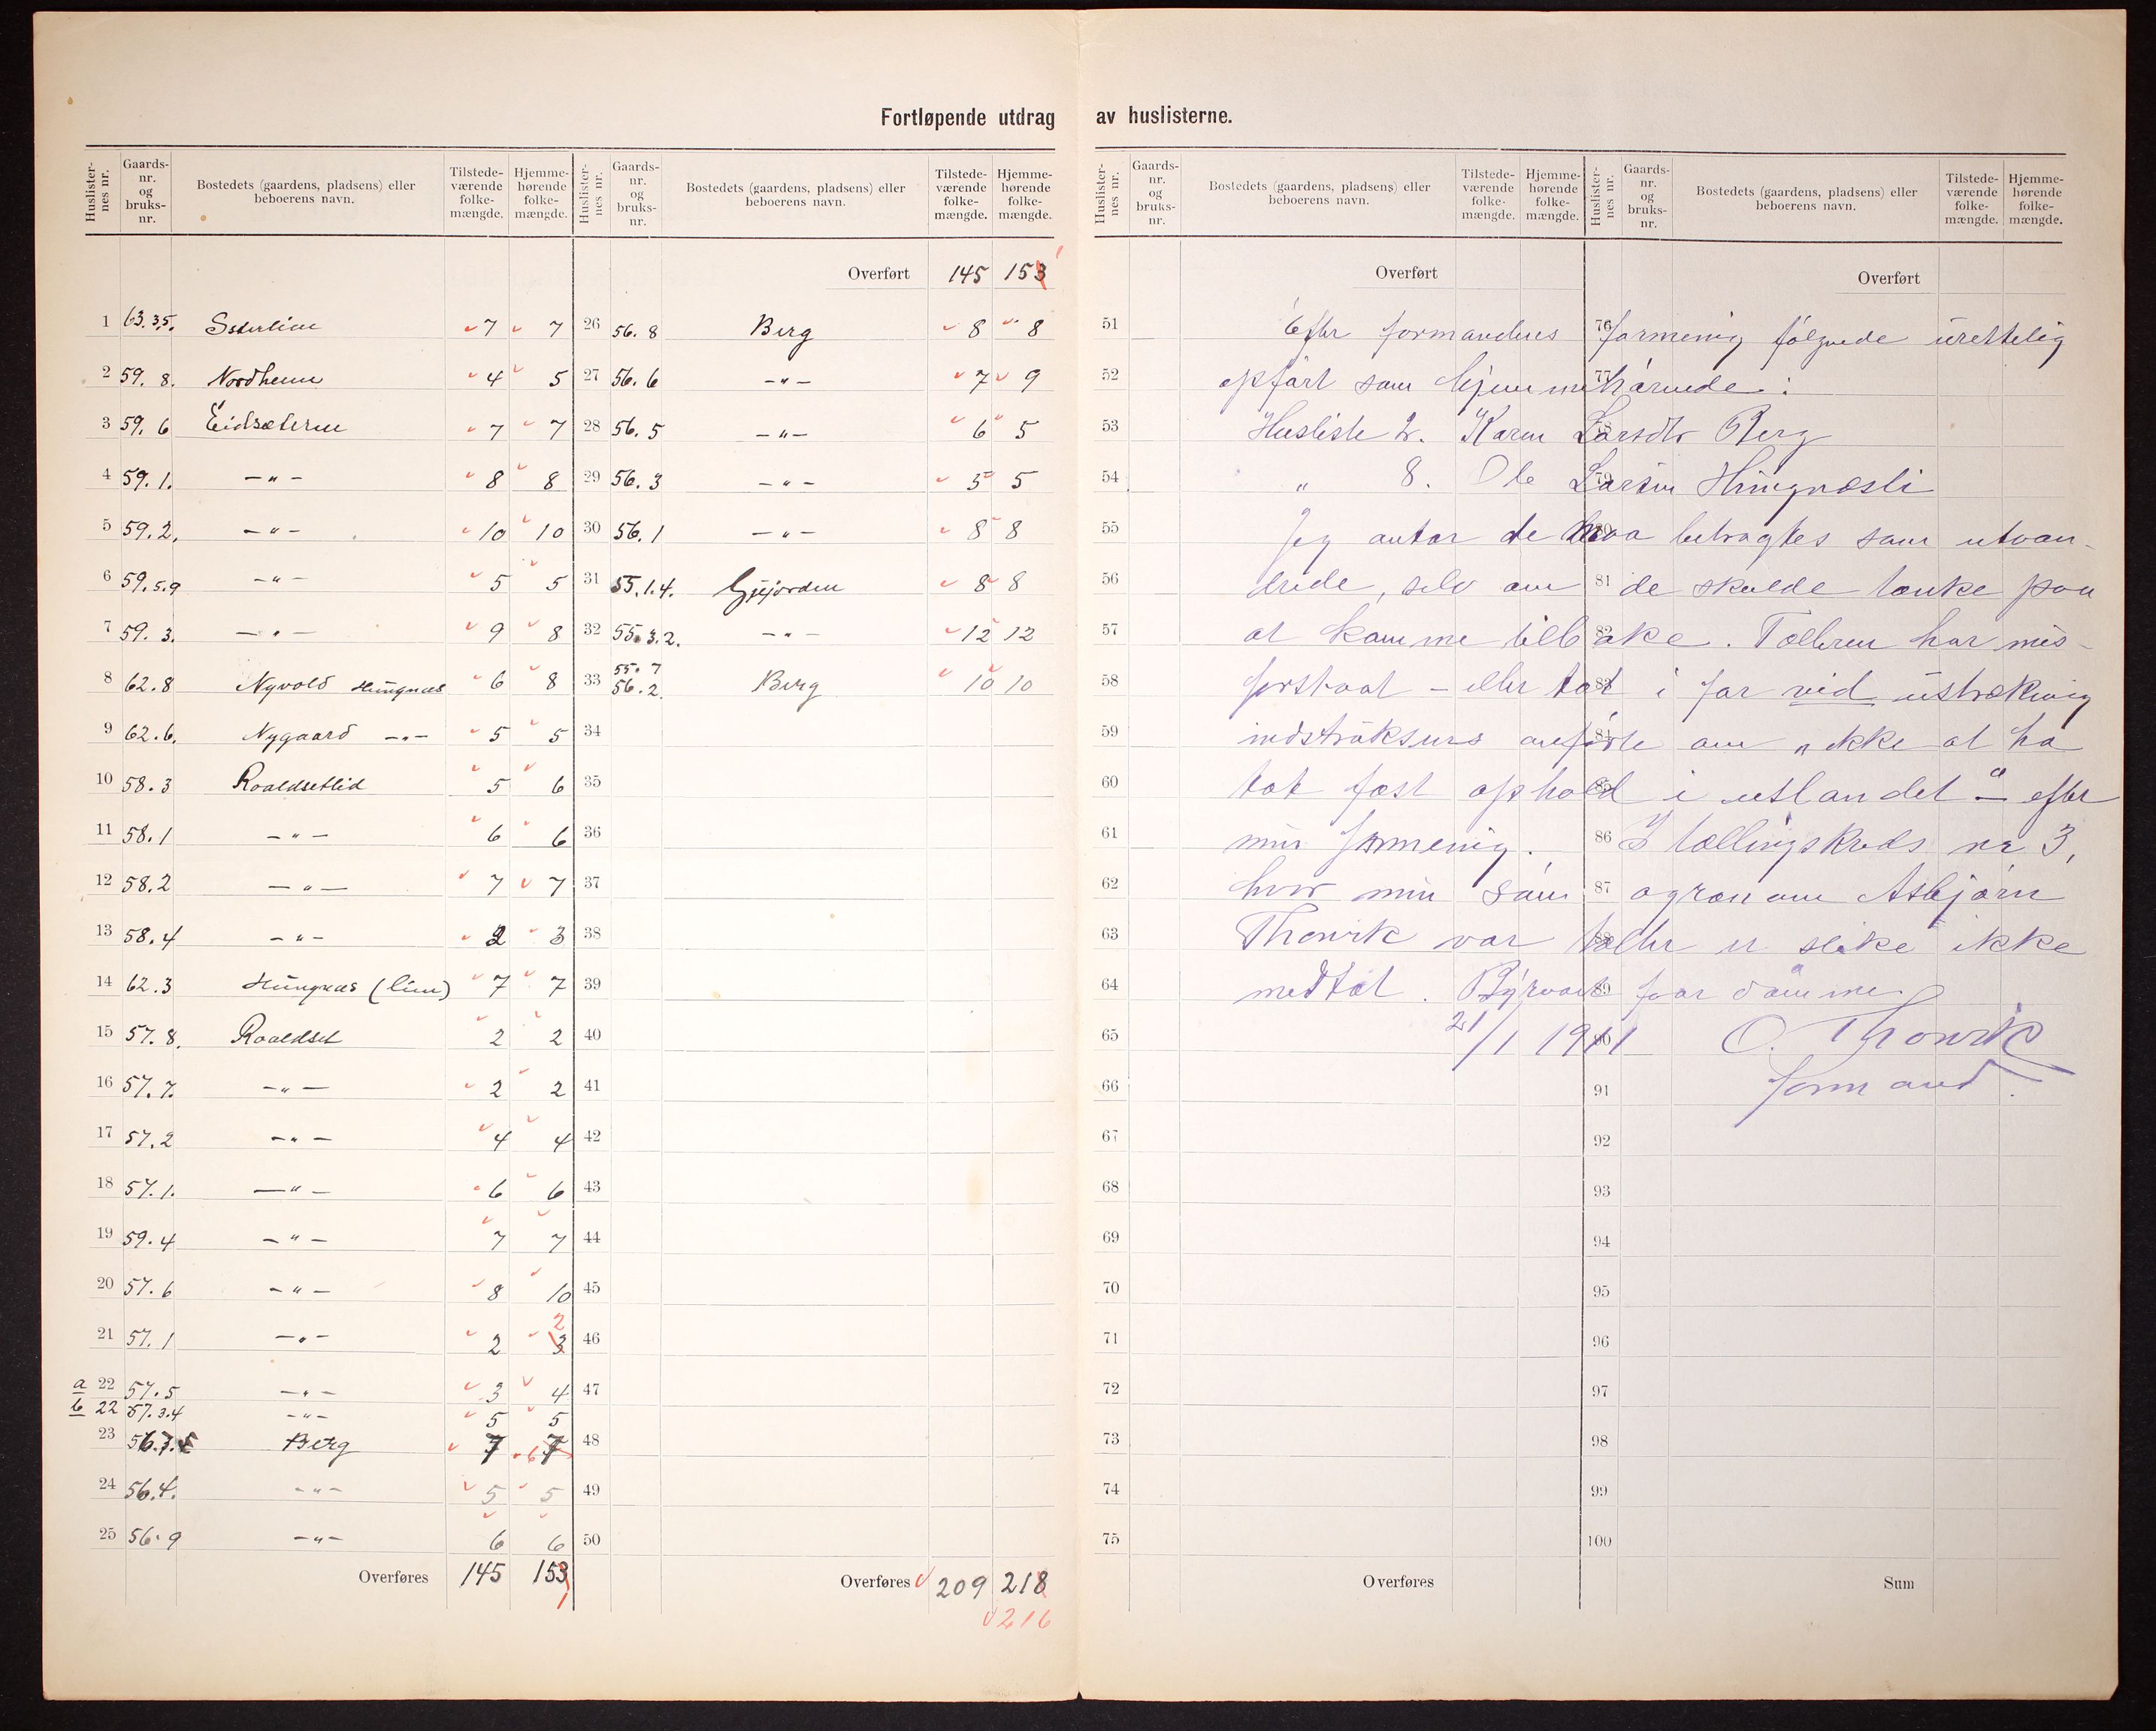 Fortløpende utdrag av huslisterne.
Huslister-nes nr. Gaards-nr. og bruks-nr. Bostedets (gaardens, pladsens) eller beboerens navn. Tilstede-værende folke-mængde. Hjemme-hørende folke-mængde.
1 63.3,5. 7 7
2 59. 8. Nordheim 4 5
3 59. 6 Eidsæteren 7 7
4 59.1. -"- 8 8
5 59.2. -"- 10 10
6 59.5.9 -"- 5 5
7 59. 3. -"- 9 8
8 62.8 Nyvold Hungnes 6 8
9 62.6. Nygaard -"- 5 5
10 58.3 Roaldsetlid 5 6
11 58.1 -"- 6 6
12 58.2 -"- 7 7
13 58.4 -"- 2 3
14 62.3 Hungnes (lien) 7 7
15 57.8. Roaldset 2 2
16 57.7. -"- 2 2
17 57.2 -"- 4 4
18 57.1. -"- 6 6
19 59.4 -"- 7 7
20 57.6 -"- 8 10
21 57.1 -"- 2 3 2
a 22 57.5 -"- 3 4
b 22 57.3.4 -"- 5 5
23 56.7. Berg 7 7 6
24 56.4. -"- 5 5
25 56.9 -"- 6 6
Overføres 145 153 1
Huslister-nes nr. Gaards-nr. og bruks-nr. Bostedets (gaardens, pladsens) eller beboerens navn. Tilstede-værende folke-mængde. Hjemme-hørende folke-mængde.
Overført 145 153 1
26 56.8 Berg 8 8
27 56.6 -"- 7 9
28 56.5 -"- 6 5
29 56.3 -"- 5 5
30 56.1 -"- 8 8
31 55.1.4. Gjejorden 8 8
32 55.3.2. -"- 12 12
33 55.7 56.2. Berg 10 10
34
35
36
37
38
39
40
41
42
43
44
45
46
47
48
49
50
Overføres 209 218
216
Huslister-nes nr. Gaards-nr. og bruks-nr. Bostedets (gaardens, pladsens) eller beboerens navn. Tilstede-værende folke-mængde. Hjemme-hørende folke-mængde.
Huslister-nes nr. Gaards-nr. og bruks-nr. Bostedets (gaardens, pladsens) eller beboerens navn. Tilstede-værende folke-mængde. Hjemme-hørende folke-mængde.
Overført Overført
51 Efter formandens 76 formening følgende urettelig
52 opført som hjemme 77 hørende :
53 Husliste 2. Karen Larsdtr Berg
54 " 8. Ole Larsen Hungnesli
55 Jeg antar de maa betragtes som utvan-
56 drede, selv om 81 de skulde tænke paa
57 at komme tilbake. Tælleren har mis-
58 forstaat - eller tat i for vid utstrækning
59 instruksens anførte om "ikke at ha
60 tat fast ophold i utlandet" - efter
61 min formening. 86 I tællingskreds nr 3,
62 hvor min søn 87 agronom Asbjørn
63 Thonvik var tæller er slike ikke
64 medtat. 89 faar dømme
65 21/1 1911 O. Thonvik
66 91 formand.
67 92
68 93
69 94
70 95
71 96
72 97
73 98
74 99
75 100
Overføres Sum